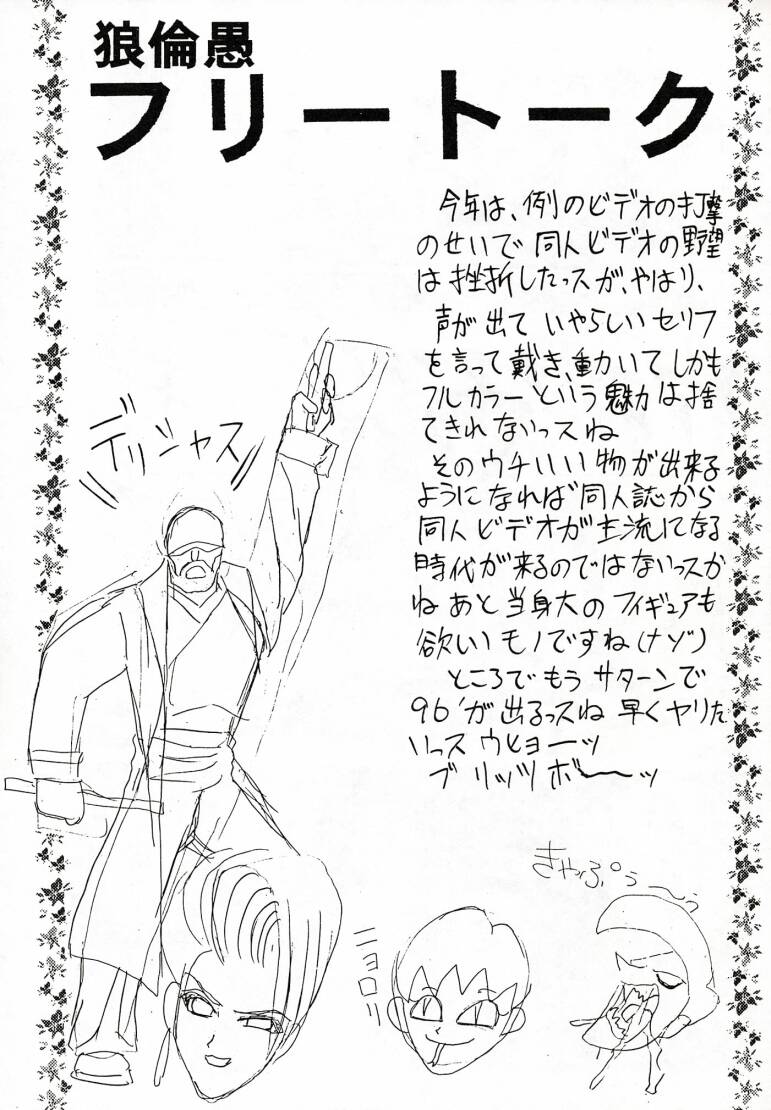 狼倫愚
フリートーク
今年は、例のビデオの打撃
のせいで同人ビデオの野望
は挫折したっスが、やはり、
声が出ていやらしいセリフ
を言って戴き、動いてしかも
フルカラーという魅力は捨
てきれないっスね
そのウチいい物が出来る
ようになれば同人誌から
同人ビデオが主流になる
時代が来るのではないっスか
ねあと当身大のフィギュアも
欲しいモノですね(ナゾ)
ところでもうサターンで
96'が出るっスね早くヤリた
いっスウヒョーッ
ブリッツボーーッ
デリシャス
きゃぷぅ〜
ニョロリ